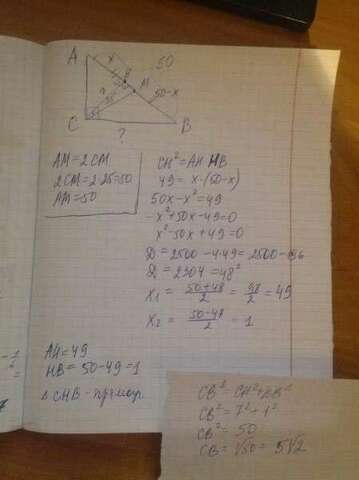 A
x
50
H
M
7
25
50-x
C
B
?
AM=2CM
2CM=2·25=50
AM=50
CH²=AH HB
49= x·(50-x)
50x-x²=49
-x²+50x-49=0
x²-50x+49=0
D=2500-4·49=2500-196
D=2304=48²
x₁ = 50+48/2 = 98/2 = 49
x₂ = 50-48/2 = 1
AH=49
HB=50-49=1
△CHB-прямоуг.
CB²=CH²+HB²
CB²=7²+1²
CB²=50
CB=√50=5√2